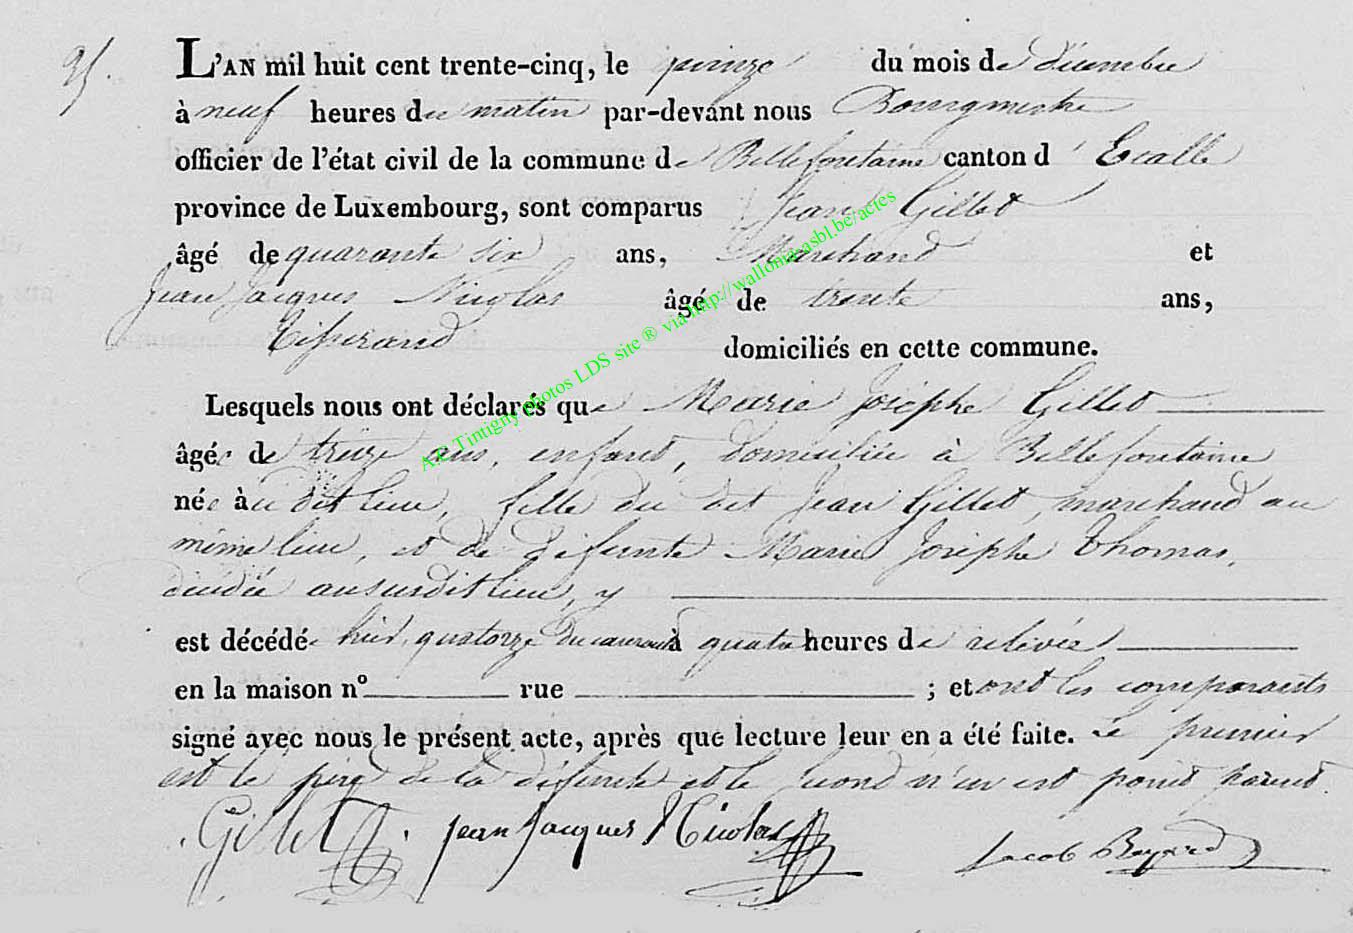 95.
L'AN mil huit cent trente-cinq, le quinze du mois de décembre
à neuf heures du matin par-devant nous Bourgmestre
officier de l'état civil de la commune de Bellefontaine canton d'Etalle
province de Luxembourg, sont comparus Jean Gillet
âgé de quarante six ans, Marchand et
Jean Jacques Nicolas âgé de trente ans,
Tisserand domiciliés en cette commune.
Lesquels nous ont déclarés que Marie Josèphe Gillet
âgée de treize ans, enfant, domiciliée à Bellefontaine
née au dit lieu, fille du dit Jean Gillet, marchand au
même lieu, et de défunte Marie Josèphe Thomas,
décédée au susdit lieu, y
est décédée hier quatorze du courant à quatre heures de relevée
en la maison n° rue ; et ont les comparants
signé avec nous le présent acte, après que lecture leur en a été faite. Le premier
est le père de la défunte et le second n'en est point parent.
Gillet Jean Jacques Nicolas Jacob
A.E Tintigny photos LDS site ® via http://wallonia-asbl.be/actes